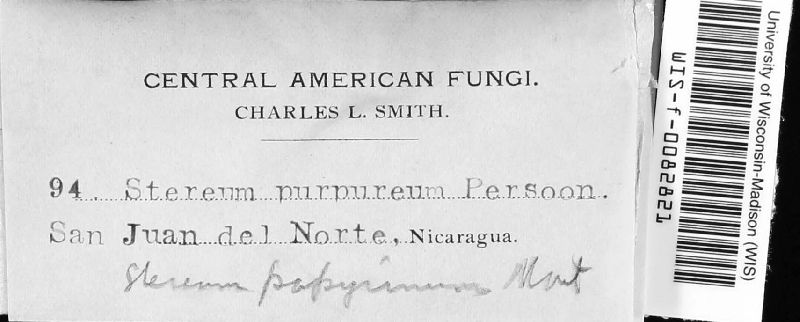 CENTRAL AMERICAN FUNGI.
CHARLES L. SMITH.
94. Stereum purpureum Persoon.
San Juan del Norte, Nicaragua.
Stereum papyrinum Mont
University of Wisconsin-Madison (WIS)
WIS-f-0082821